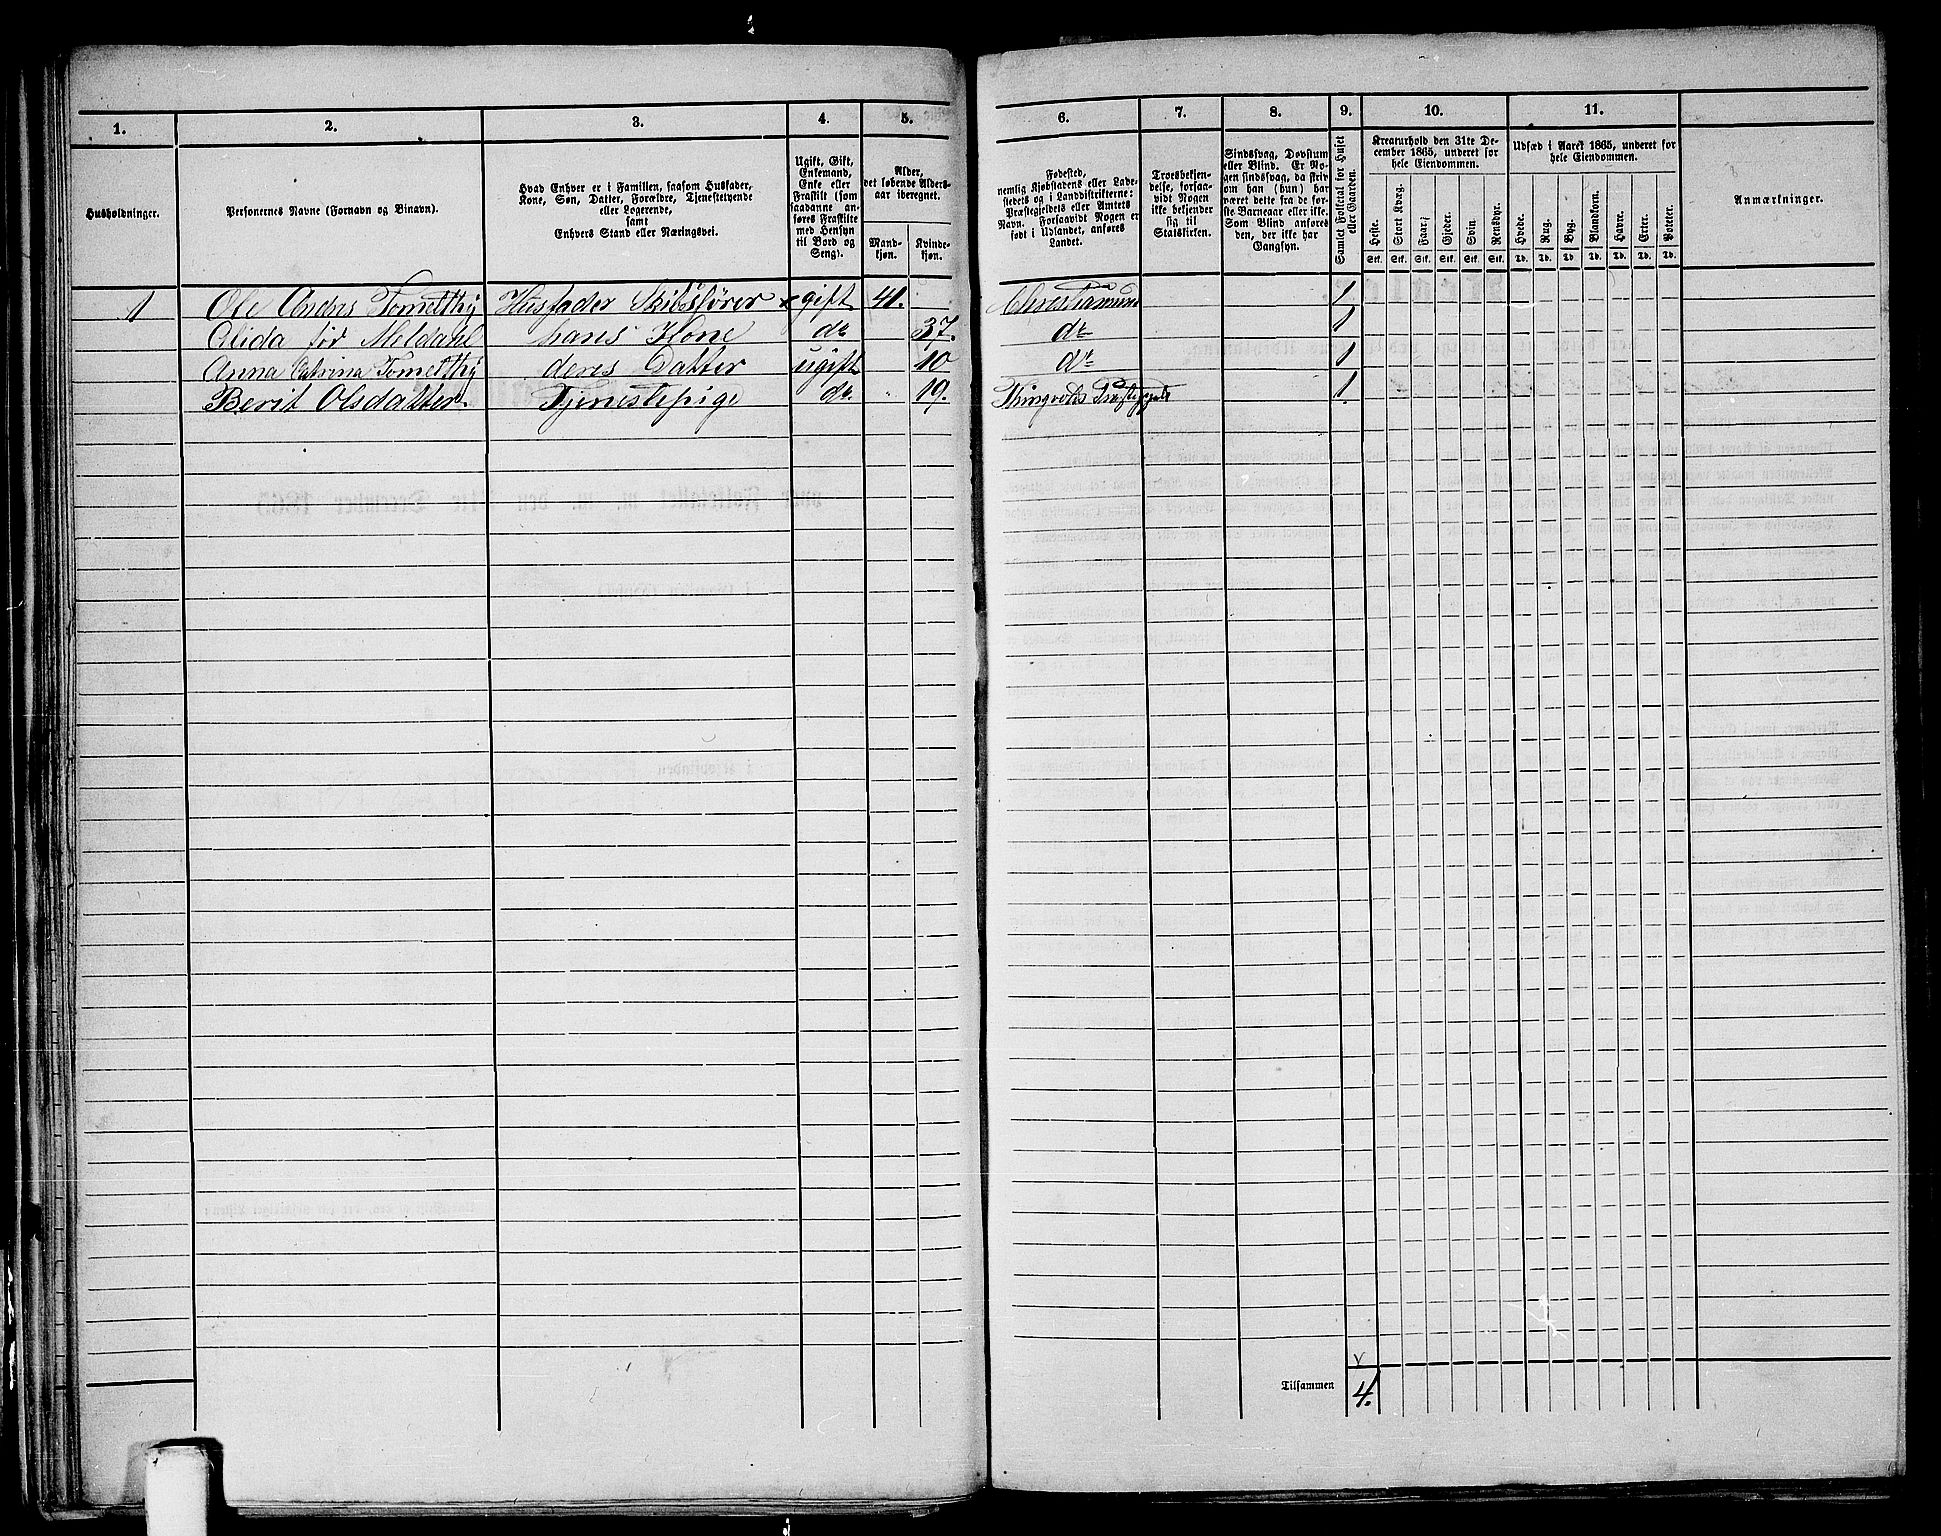 1. 2. 3. 4. 5. 6. 7. 8. 9. 10. 11.
Husholdninger.
Personernes Navne (Fornavn og Binavn).
Hvad Enhver er i Familien, saasom Husfader,
Kone, Søn, Datter, Forældre, Tjenestetyende
eller Logerende,
samt
Enhvers Stand eller Næringsvei.
Ugift, Gift,
Enkemand,
Enke eller
Fraskilt (som
saadanne an-
føres Fraskilte
med Hensyn
til Bord og
Seng).
Alder,
det løbende Alders-
aar iberegnet.
Mand-
kjøn.
Kvinde-
kjøn.
Fødested,
nemlig Kjøbstadens eller Lade-
stedets og i Landdistrikterne:
Præstegjeldets eller Amtets
Navn. Forsaavidt Nogen er
født i Udlandet, anføres
Landet.
Troesbekjen-
delse, forsaa-
vidt Nogen
ikke bekjender
sig til
Statskirken.
Sindssvag, Døvstum
eller Blind. Er No-
gen sindssvag, da skriv
om han (hun) har
været dette fra de før-
ste Barneaar eller ikke.
Som Blind anføres
den, der ikke har
Gangsyn.
Samlet Folketal for Huset
eller Gaarden.
Kreaturhold den 31te De-
cember 1865, underet for
hele Eiendommen.
Heste. Stort Kvæg. Faar. Gjeder. Svin. Rensdyr.
Stk. Stk. Stk. Stk. Stk. Stk.
Udsæd i Aaret 1865, underet for
hele Eiendommen.
Hvede. Rug. Byg. Blandkorn. Havre. Erter. Poteter.
Td. Td. Td. Td. Td. Td. Td.
Anmærkninger.
1 Ole Andrs Tometthy Husfader Skibsfører gift 41. Christiansund 1
Alida før Meldahl hans Kone do 37. do 1
Anna Catrina Tometthy deres Datter ugift 10 do 1
Berit Olsdatter Tjenestepige do. " 19. Thingvolds Præstegjeld 1
Tilsammen 4.